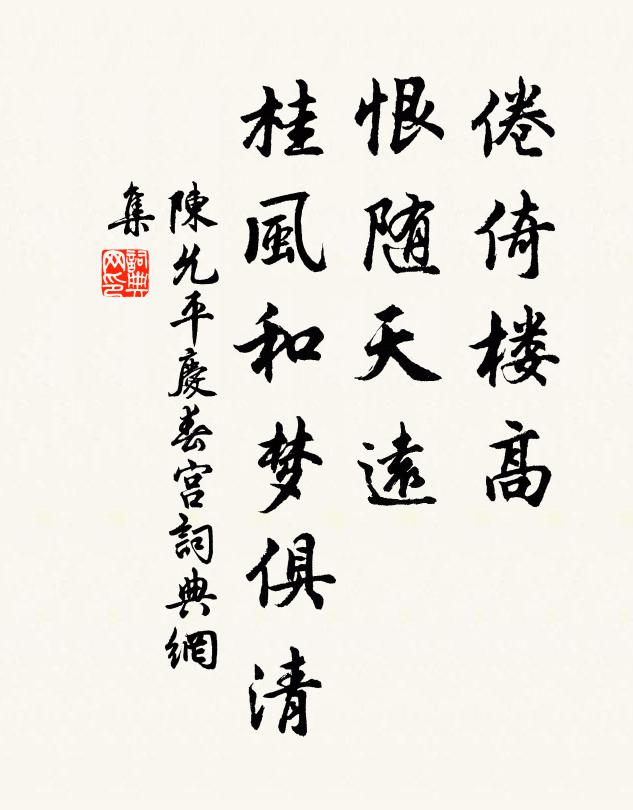 倦倚楼高
恨随天遠
桂風和梦俱清
陳允平慶春宮詞典網
集
詞典网印